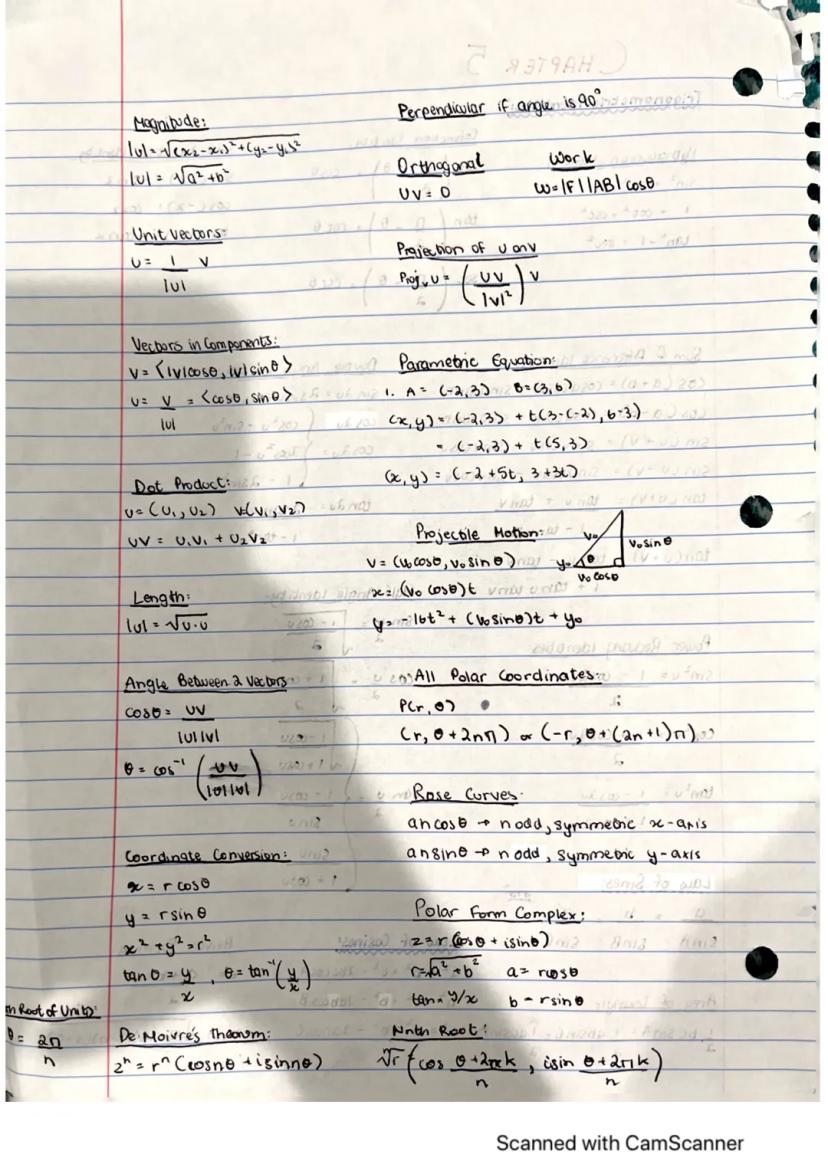 Magnitude:
|v| = √(x₂-x₁)²+(y₂-y₁)²
|v| = √a²+b²
Unit Vectors:
u = 1/|v| v
Vectors in Components:
v = <|v|cosθ, |v|sinθ>
u = v/|v| = <cosθ, sinθ>
Dot Product:
u = (u₁, u₂) v=(v₁, v₂)
uv = u₁v₁ + u₂v₂
Length:
|u| = √u·u
Angle Between 2 Vectors
cosθ = uv/|u||v|
θ = cos⁻¹ (uv/|u||v|)
Coordinate Conversion:
x = r cosθ
y = r sin θ
x² + y² = r²
tan θ = y/x , θ = tan⁻¹(y/x)
nth Root of Unity:
θ = 2π/n
De Moivre's Theorum:
zⁿ = rⁿ (cosnθ + isinnθ)
Perpendicular if angle is 90°
Orthogonal
uv = 0
Work
W = |F||AB| cosθ
Projection of u onv
Projᵥu = (uv/|v|²) v
Parametric Equation:
1. A = (-2,3) B = (3,6)
(x,y) = (-2,3) + t(3-(-2), 6-3)
= (-2,3) + t(5,3)
(x,y) = (-2+5t, 3+3t)
Projectile Motion:
v = (v₀cosθ, v₀sinθ)
x = (v₀ cosθ)t
y = -16t² + (v₀sinθ)t + y₀
v₀
v₀ sin θ
y₀
θ
v₀ cosθ
All Polar Coordinates:
P(r, θ)
(r, θ+2nπ) or (-r, θ+(2n+1)π)
Rose Curves:
ancosθ → n odd, symmetric x-axis
ansinθ → n odd, symmetric y-axis
Polar Form Complex:
z = r(cosθ + isinθ)
r=√a²+b² a = rcosθ
tan = y/x b = rsinθ
Nnth Root:
ⁿ√r (cos θ+2πk/n , isin θ+2πk/n)
Scanned with CamScanner